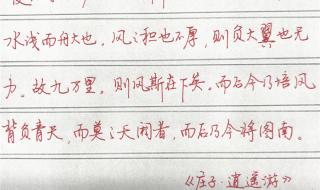 水浅而舟大也。风之积也不厚，则负大翼也无
力。故九万里，则风斯在下矣。而后乃今培风
背负青天，而莫之夭阏者，而后乃今将图南。
《庄子·逍遥游》